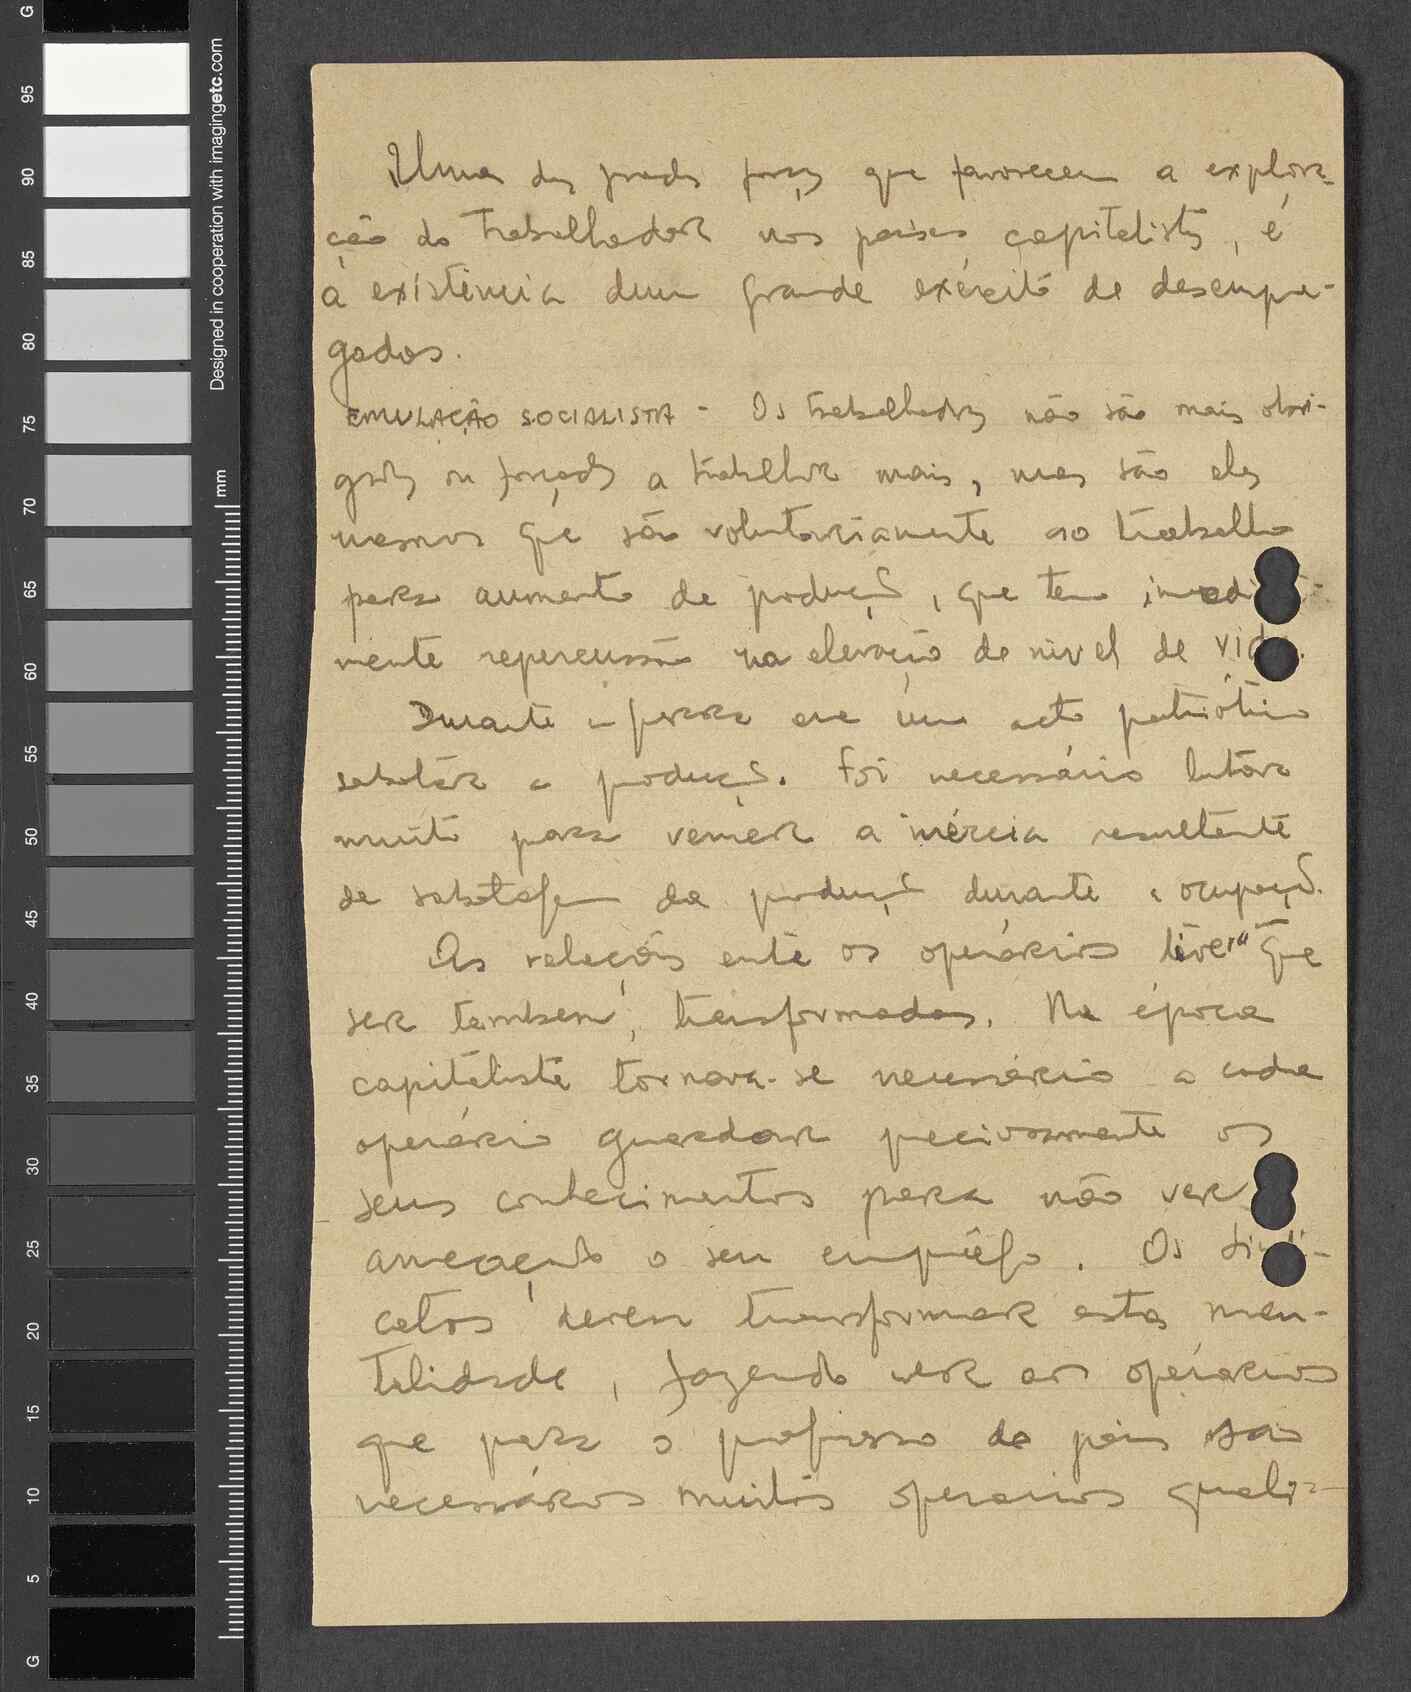 Uma das grandes forças que favorecem a explora-
ção do trabalhador nos países capitalistas, é
a existência dum grande exército de desempre-
gados.
EMULAÇÃO SOCIALISTA - Os trabalhadores não são mais obri-
gados ou forçados a trabalhar mais, mas são eles
mesmos que vão voluntariamente ao trabalho
para aumento de produção, que tem imediata-
mente repercussão na elevação de nível de vida.
Durante a guerra era um acto patriótico
sabotar a produção. Foi necessário lutar
muito para vencer a inércia resultante
da sabotagem da produção durante a ocupação.
As relações entre os operários tiveram que
ser tambem, transformadas. Na época
capitalista tornava-se necessário a cada
operário guardar preciosamente os
seus conhecimentos para não ver
ameaçado o seu emprêgo. Os sindi-
catos devem transformar esta men-
talidade, fazendo ver aos operários
que para o progresso do país são
necessários muitos operarios quali-
G 95 90 85 80 75 70 65 60 55 50 45 40 35 30 25 20 15 10 5 G
Designed in cooperation with imagingetc.com
mm